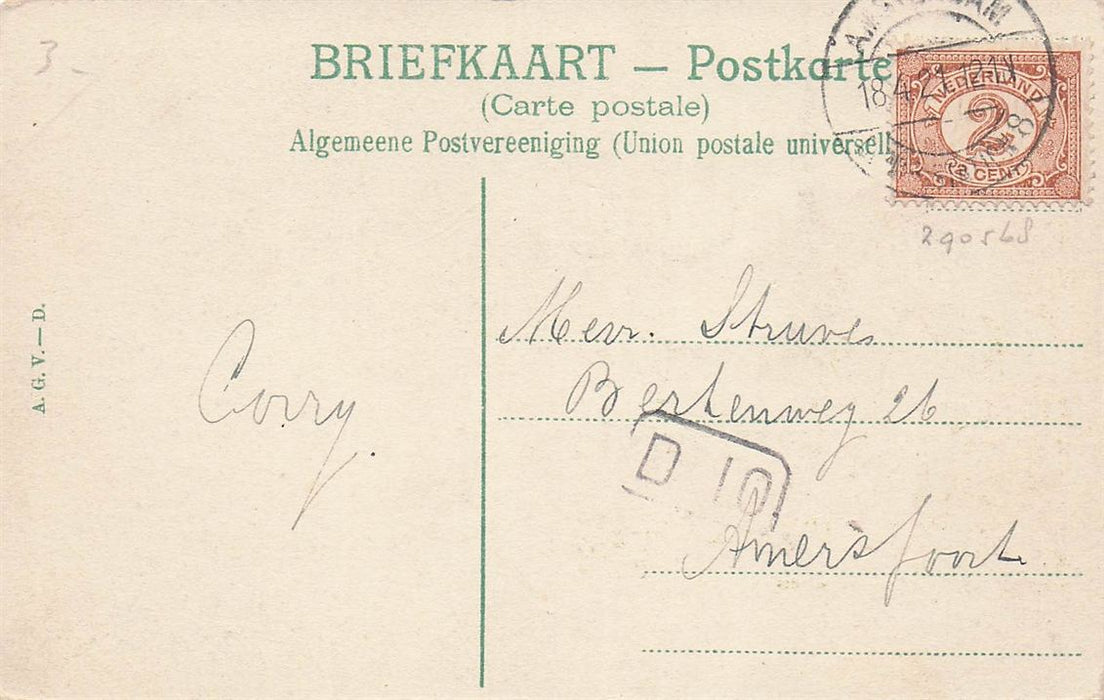 3-
BRIEFKAART — Postkarte
(Carte postale)
Algemeene Postvereeniging (Union postale universell
AMSTERDAM
18.4.21
NEDERLAND
2
2 CENT
290568
A. G. V. — D.
Corry.
Mevr. Struves
Berkenweg 26
D 10
Amersfoort